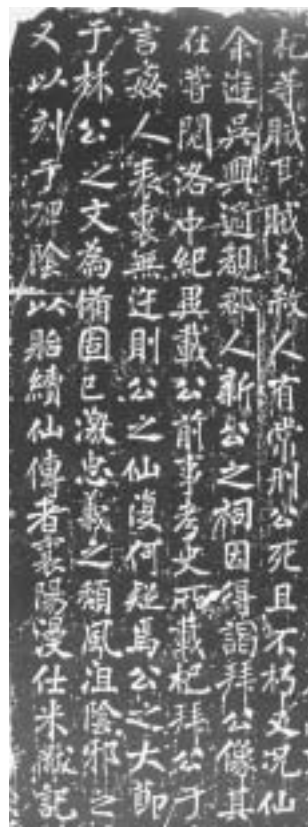 杞等賊甘賊之殺人有常刑公死且不朽又况仙
余遊吳興適觀郡人新公之祠因得謁拜公像其
在嘗閱洛中紀異載公前事考史所載杞拜公于
言姦人表裏無迕則公之仙復何疑焉公之大節
于林公之文為備固已激忠義之頹風沮陰邪之
又以刻于碑陰以貽續仙傳者襄陽漫仕米黻記